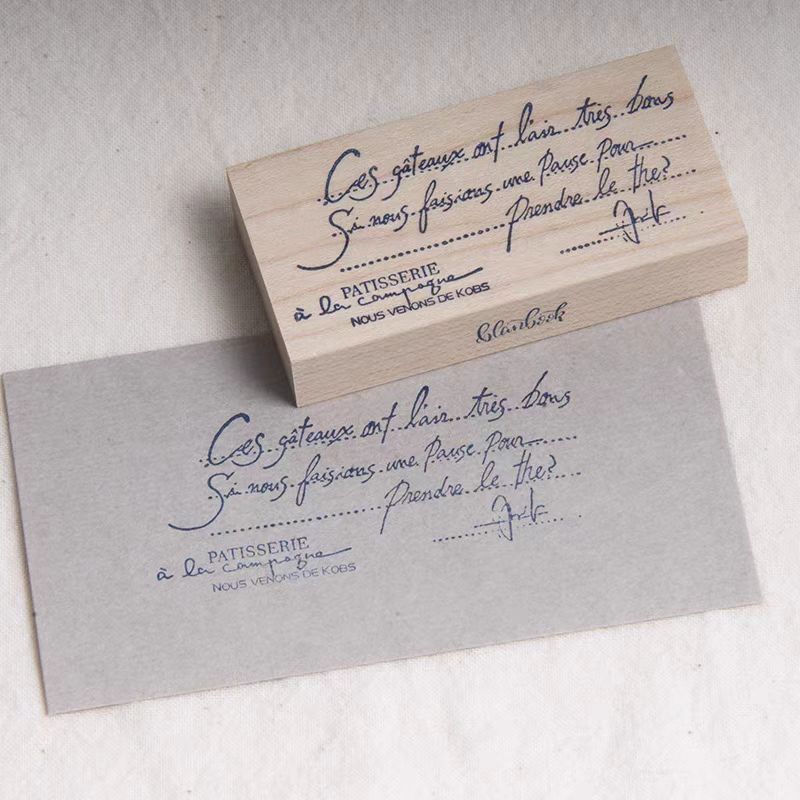 Ces gâteaux ont l'air très bons
Si nous faisions une Pause Pour
Prendre le the?
PATISSERIE
à la campagne
NOUS VENONS DE KOBS
blanbook
Ces gâteaux ont l'air très bons
Si nous faisions une Pause Pour
Prendre le the?
PATISSERIE
à la campagne
NOUS VENONS DE KOBS